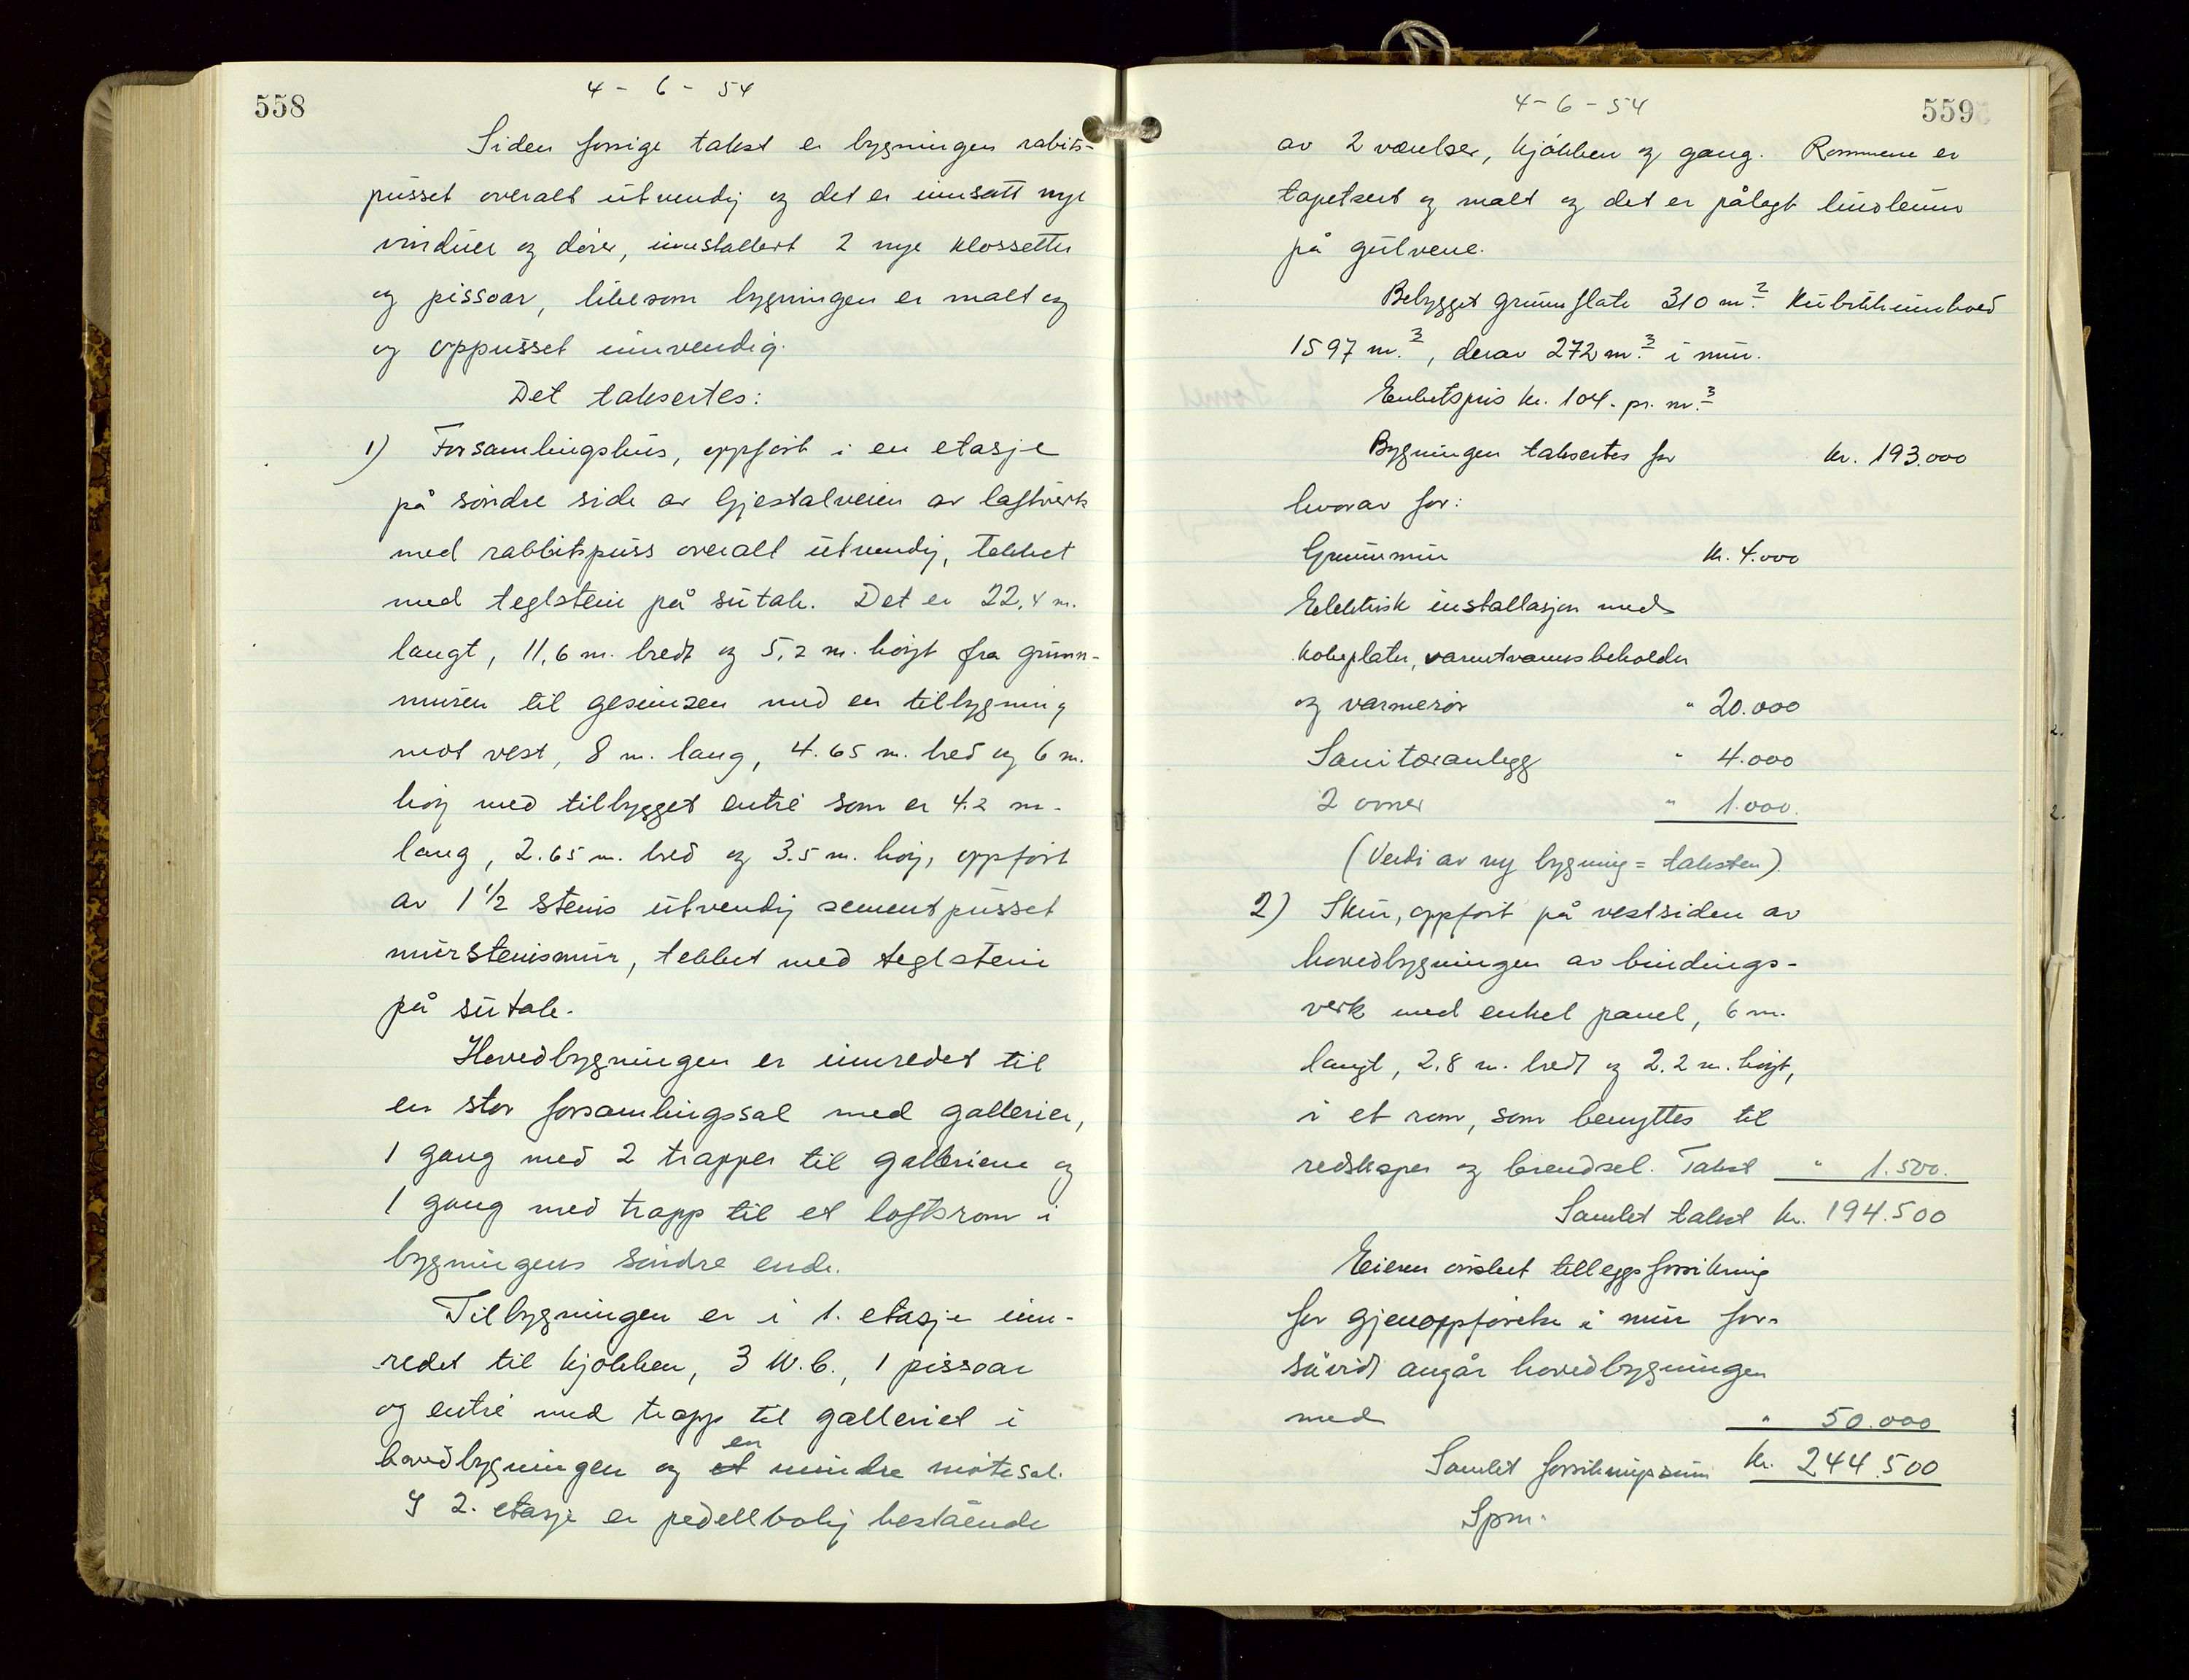 558
4 - 6 - 54
Siden forrige takst er bygningen rabits-
pusset overalt utvendig og det er innsatt nye
vinduer og dører, innstallert 2 nye klossetter
og pissoar, likesom bygningen er malt og
og oppusset innvendig.
Det taksertes:
1) Forsamlingshus, oppført i en etasje
på søndre side av Gjestalveien av laftverk
med rabbitspuss overalt utvendig, tekket
med teglstein på sutak. Det er 22,4 m.
langt, 11,6 m. bredt og 5,2 m. høgt fra grunn-
muren til gesimsen med en tilbygning
mot vest, 8 m. lang, 4.65 m. bred og 6 m.
høg med tilbygget entré som er 4.2 m.
lang, 2.65 m. bred og 3.5 m. høg, oppført
av 1 1/2 steins utvendig sementpusset
murstensmur, tekket med teglstein
på sutak.
Hovedbygningen er innredet til
en stor forsamlingssal med gallerier,
1 gang med 2 trapper til galleriene og
1 gang med trapp til et loftsrom i
bygningens søndre ende.
Tilbygningen er i 1. etasje inn-
redet til kjøkken, 3 W.C., 1 pissoar
og entré med trapp til galleriet i
hovedbygningen og et en mindre møtesal.
I 2. etasje er pedellbolig bestående
4 - 6 - 54
559
av 2 værelser, kjøkken og gang. Rommene er
tapetsert og malt og det er pålagt linoleum
på gulvene.
Bebygget grunnflate 310 m.2 Kubikkinnhold
1597 m.3, derav 272 m.3 i mur.
Enhetspris kr. 104.- pr. m.3
Bygningen taksertes for kr. 193.000
hvorav for:
Grunnmur kr. 4.000
Elektrisk installasjon med
kokeplater, varmtvannsbeholder
og varmerør " 20.000
Sanitæranlegg " 4.000
2 ovner " 1.000.
(Verdi av ny bygning = taksten).
2) Skur, oppført på vestsiden av
hovedbygningen av bindings-
verk med enkel panel, 6 m.
langt, 2.8 m. bredt og 2.2 m. høgt,
i et rom, som benyttes til
redskaper og brendsel. Takst " 1.500.
Samlet takst kr. 194.500
Eieren ønsket tilleggsforsikring
for gjenoppførelse i mur for-
såvidt angår hovedbygningen
med " 50.000
Samlet forsikringssum kr. 244.500
Spm.